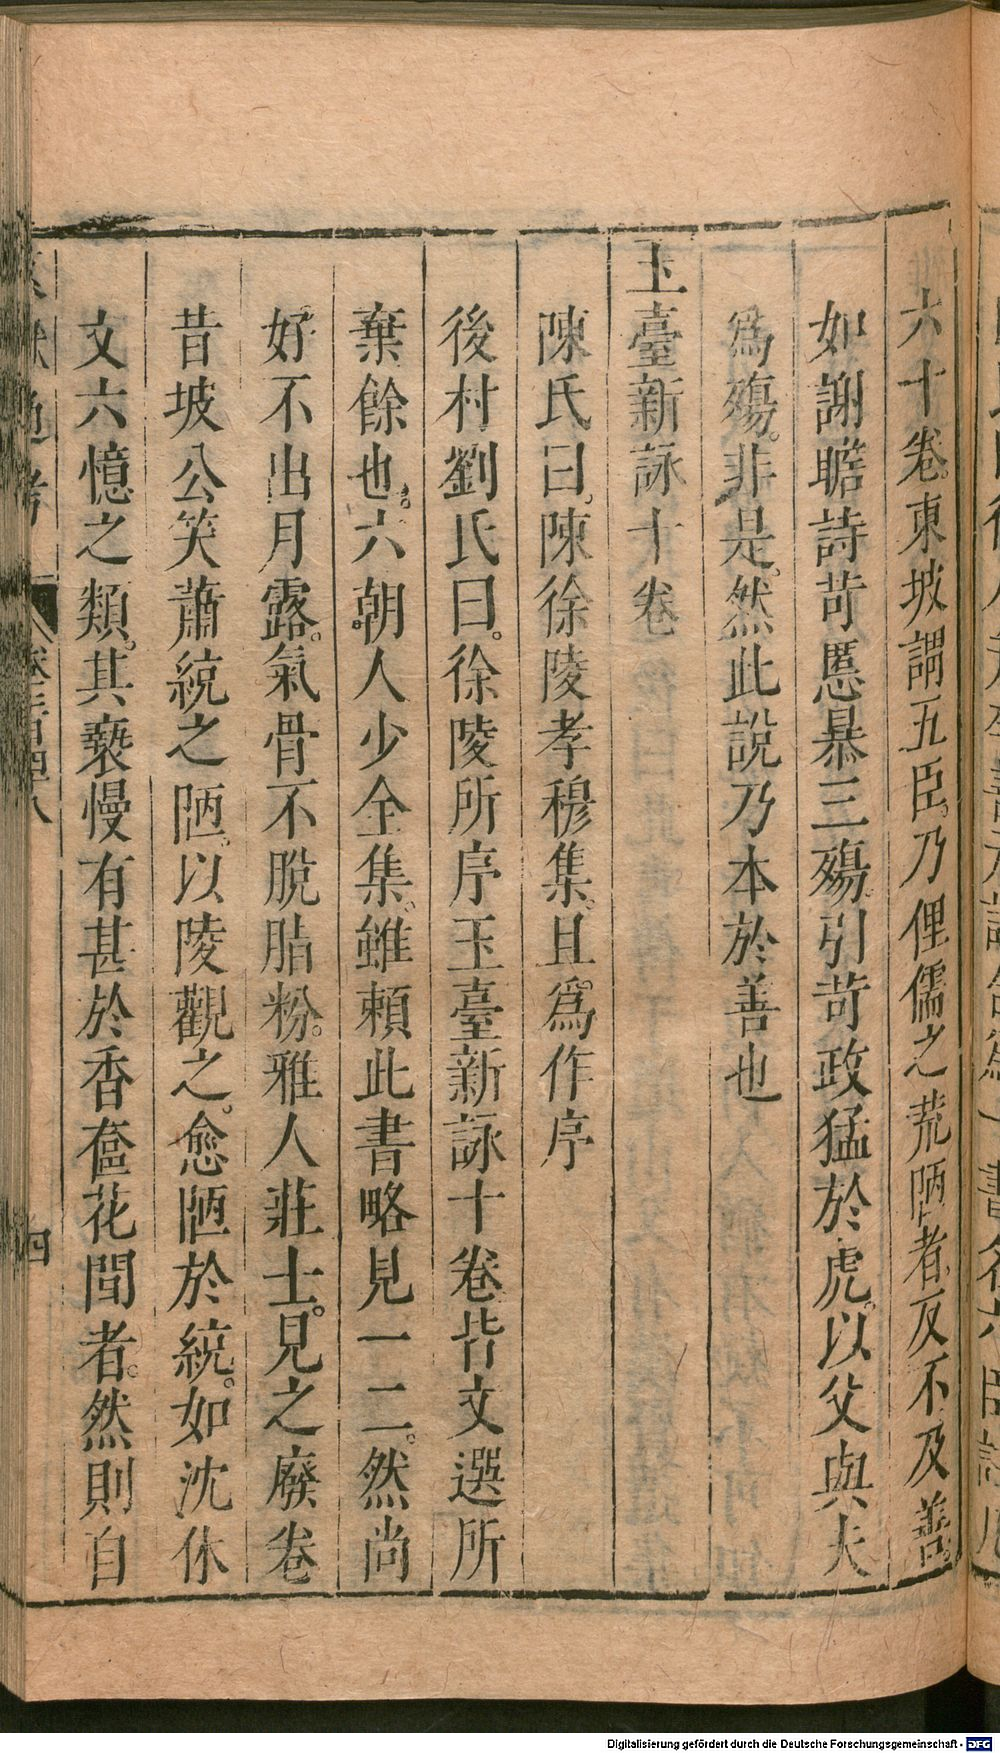 六十卷。東坡謂五臣。乃俚儒之荒陋者。反不及善。
如謝瞻詩苛慝暴三殤。引苛政猛於虎。以父與夫
為殤。非是。然此說乃本於善也
玉臺新詠十卷
陳氏曰。陳徐陵孝穆集。且爲作序
後村劉氏曰。徐陵所序玉臺新詠十卷皆文選所
棄餘也。六朝人少全集。雖賴此書略見一二。然尚
好不出月露。氣骨不脫脂粉。雅人莊士。見之廢卷
昔坡公笑蕭統之陋。以陵觀之。愈陋於統。如沈休
文六憶之類。其褻慢有甚於香奩花間者。然則自
卷二百四十八
四
Digitalisierung gefördert durch die Deutsche Forschungsgemeinschaft - DFG